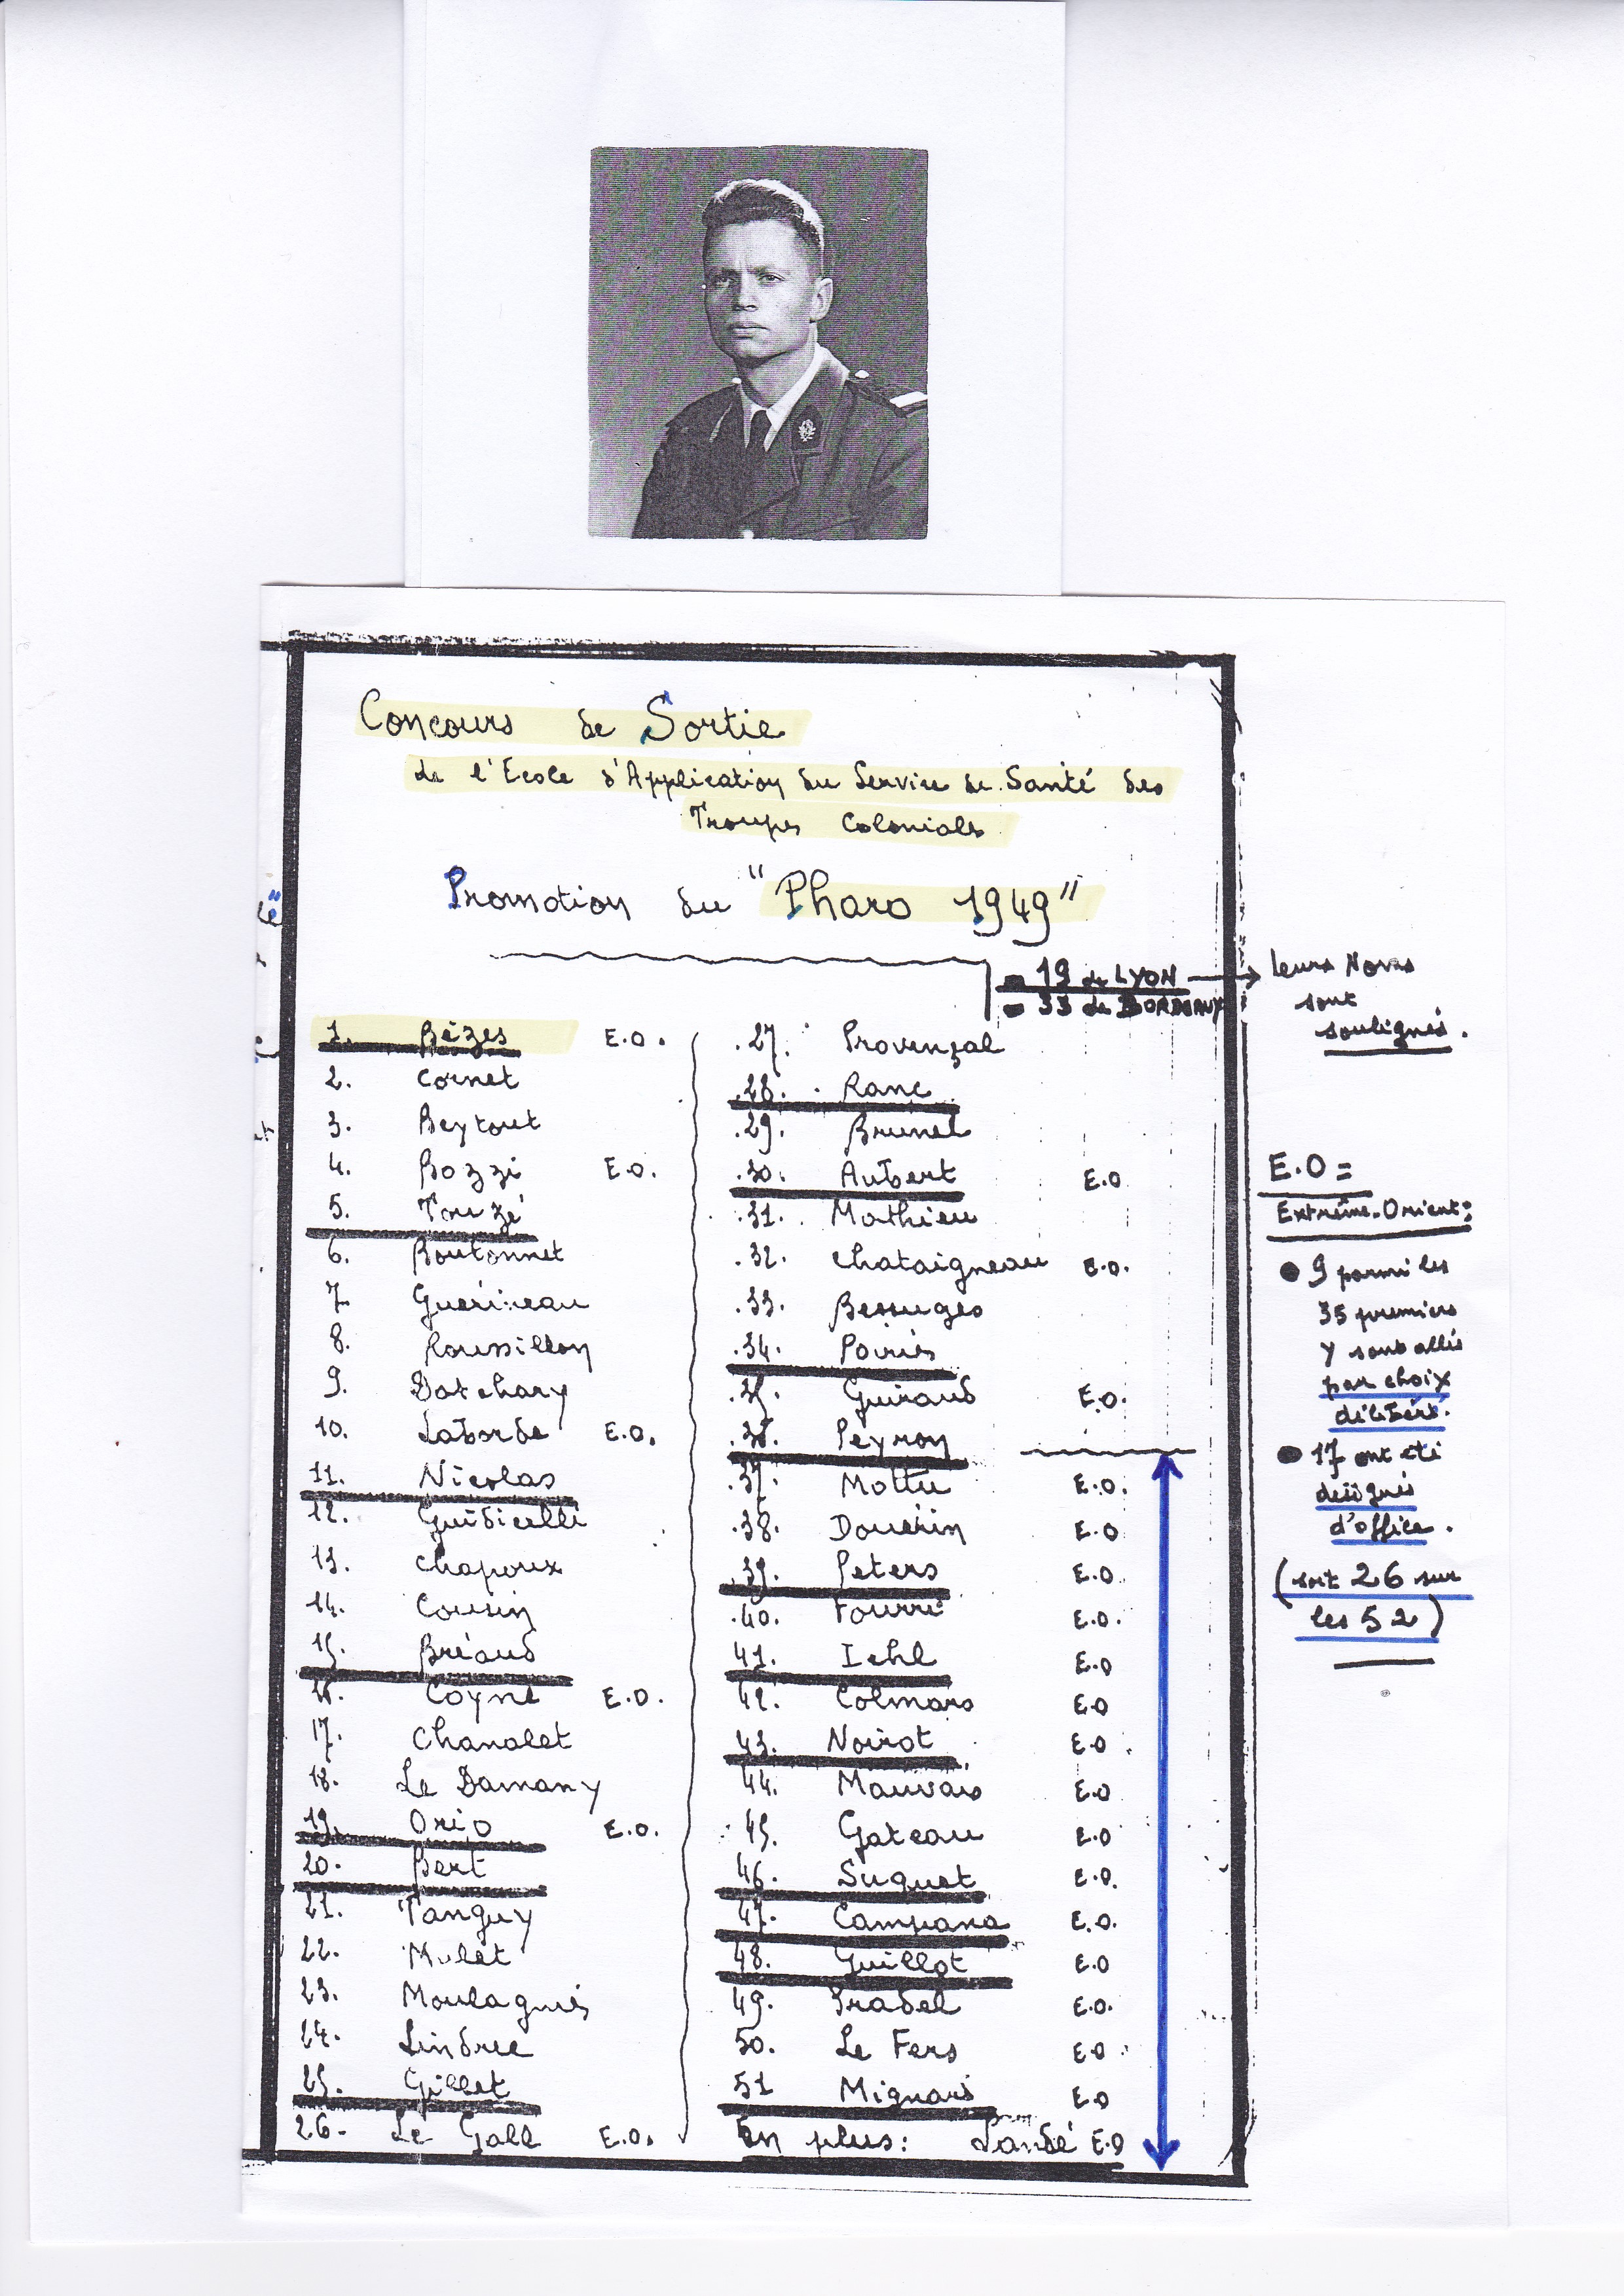 Concours de Sortie
de l'Ecole d'Application du Service de Santé des
Troupes Colonials
Promotion du "Pharo 1949"
- 19 de LYON → leurs Noms
- 33 de BORDEAUX
sont
soulignés.
1. Bézes E.O.
2. Cornet
3. Beytout
4. Bozzi E.O.
5. Touzé
6. Boutonnet
7. Guérineau
8. Roussillon
9. Datchary
10. Laborde E.O.
11. Nicolas
12. Guidicelli
13. Chapoux
14. Cousin
15. Bréaud
16. Coyne E.O.
17. Chanalet
18. Le Damany
19. Orio E.O.
20. Bert
21. Tanguy
22. Mulet
23. Moulagnis
24. Lindree
25. Gillet
26. Le Gall E.O.
27. Provenzal
28. Ranc
29. Brunel
30. Aubert E.O
31. Mathieu
32. Chataigneau E.O.
33. Bessuges
34. Poiriés
35. Guiraud E.O.
36. Peyron
37. Mottu E.O.
38. Douérin E.O
39. Peters E.O.
40. Fourré E.O.
41. Iehl E.O
42. Colmars E.O
43. Noirot E.O
44. Mauvais E.O
45. Gateau E.O
46. Suquet E.O.
47. Campana E.O.
48. Guillot E.O
49. Pradel E.O.
50. Le Fers E.O
51 Mignard E.O
En plus: E.O
E.O =
Extrême-Orient:
● 9 parmi les
35 premiers
y sont allés
par choix
délibéré.
● 17 ont été
désignés
d'office.
(soit 26 sur
les 52)